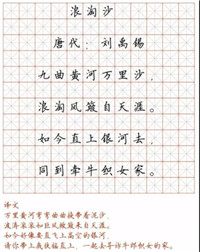 浪淘沙
唐代：刘禹锡
九曲黄河万里沙，
浪淘风簸自天涯。
如今直上银河去，
同到牵牛织女家。
译文
万里黄河弯弯曲曲挟带着泥沙，
波涛滚滚如巨风掀簸来自天涯。
如今好像要直飞上高空的银河，
请你带上我扶摇直上，一起去寻访牛郎织女的家。